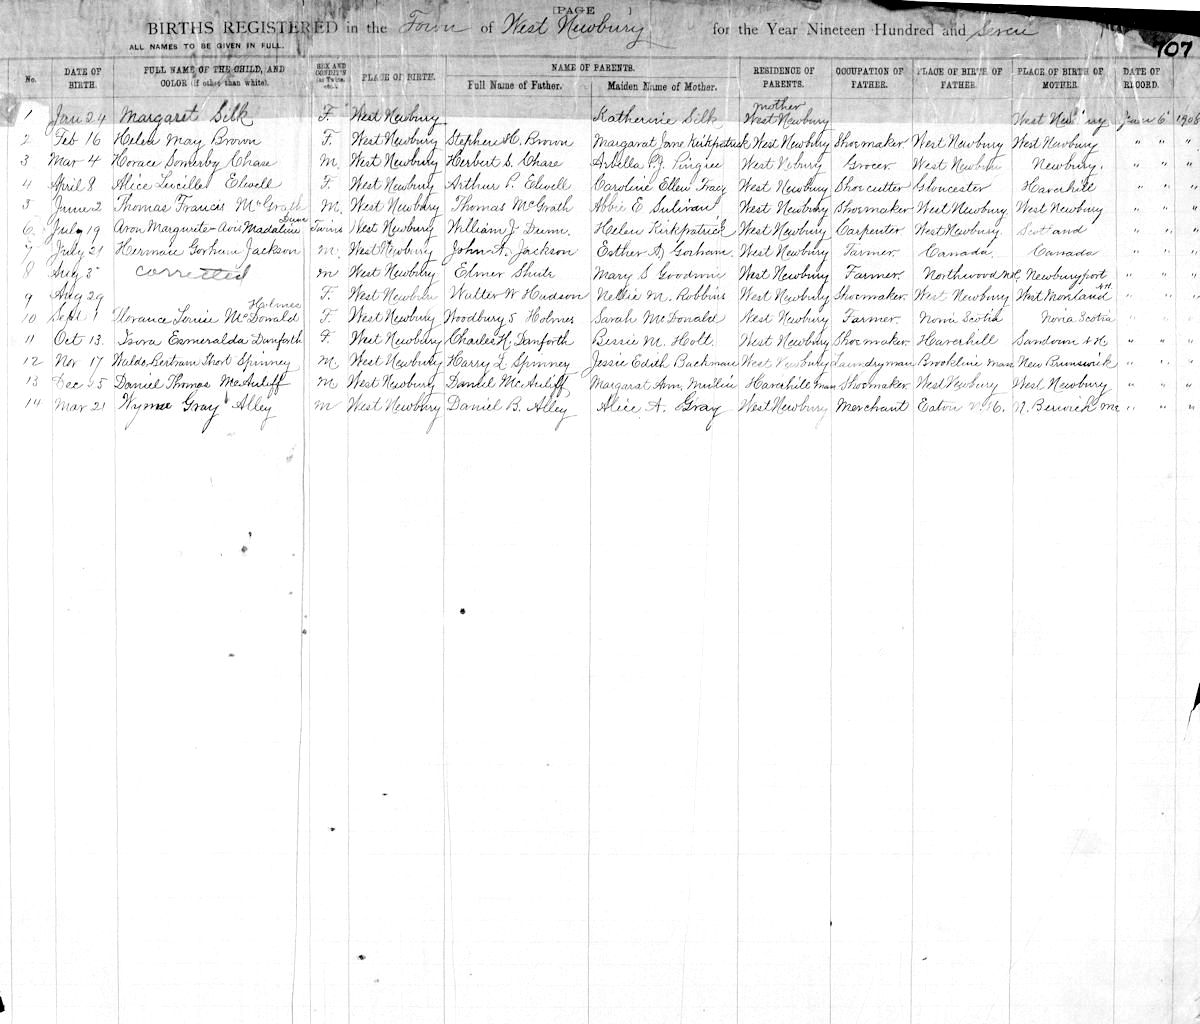 [PAGE ]
BIRTHS REGISTERED in the Town of West Newbury for the Year Nineteen Hundred and Seven
ALL NAMES TO BE GIVEN IN FULL.
107
No. DATE OF BIRTH. FULL NAME OF THE CHILD, AND COLOR (if other than white). SEX AND CONDIT'N (as Twins, etc.) PLACE OF BIRTH. NAME OF PARENTS. Full Name of Father. Maiden Name of Mother. RESIDENCE OF PARENTS. OCCUPATION OF FATHER. PLACE OF BIRTH OF FATHER. PLACE OF BIRTH OF MOTHER. DATE OF RECORD.
mother
1 Jan 24 Margaret Silk F. West Newbury Katherine Silk West Newbury West New ry Jan 6 1908
2 Feb 16 Helen May Brown F. West Newbury Stephen H. Brown Margarat Jane Kirkpatrick West Newbury Shoemaker West Newbury West Newbury " " "
3 Mar 4 Horace Somerby Chase M. West Newbury Herbert S. Chase Arvella P. J. Pingree West Newbury Grocer West Newbury Newbury. " " "
4 April 8 Alice Lucille Elwell F. West Newbury Arthur P. Elwell Caroline Ellen Tracy West Newbury Shoecutter Gloucester Haverhill " " "
5 June 2 Thomas Francis McGrath M. West Newbury Thomas McGrath Abbie E Sulivan West Newbury Shoemaker West Newbury West Newbury " " "
Dunn
6 July 19 Aron Margurite Avis Madaline Twins West Newbury William J Dunn. Helen Kirkpatrick West Newbury Carpenter West Newbury. Scotland " " "
7 July 21 Herman Gorham Jackson M. West Newbury John A. Jackson Esther A. Gorham. West Newbury Farmer. Canada. Canada " " "
8 Aug 3 corrected M West Newbury Elmer Shute Mary S Goodwin West Newbury Farmer. Northwood N.H. Newburyport " " "
9 Aug 29 F. West Newbury Walter W Hudson Nellie M. Robbins West Newbury Shoemaker. West Newbury West Morland N.H. " " "
Holmes
10 Sept 1 Florance Louise McDonald F. West Newbury Woodbury S Holmes Sarah McDonald West Newbury Farmer. Nova Scotia Nova Scotia " " "
11 Oct 13 Esmeralda Danforth F. West Newbury Charles H. Danforth Bessie M. Holt West Newbury Shoemaker. Haverhill Sandown N H " " "
12 Nov 17 Waldo Bertram Short Spinney M. West Newbury Harry L Spinney Jessie Edith Backman West Newbury Laundryman Brookline Mass New Brunswick " " "
13 Dec 25 Daniel Thomas McAuliff M West Newbury Daniel McAuliff Margarat Ann. Haverhill Mass Shoemaker West Newbury West Newbury " " "
14 Mar 21 Wyman Gray Alley M West Newbury Daniel B. Alley Alice A. Gray West Newbury Merchant Eaton N.H. N. Berwick Me " " "